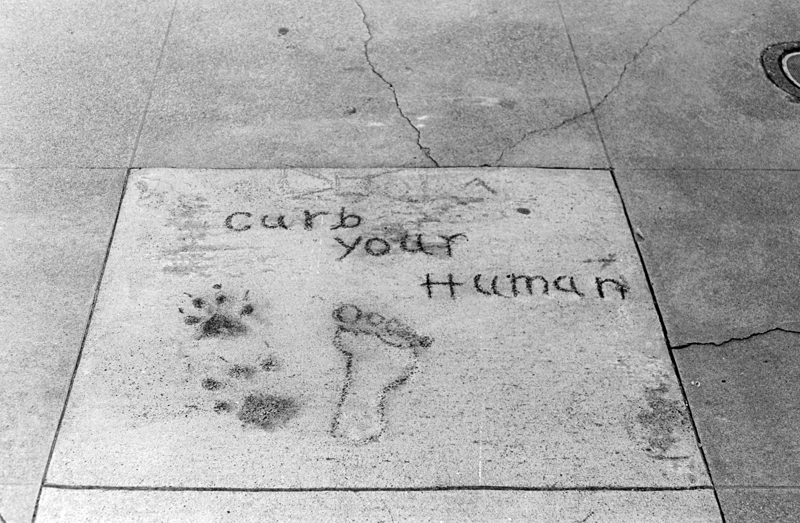 curb
your
Human